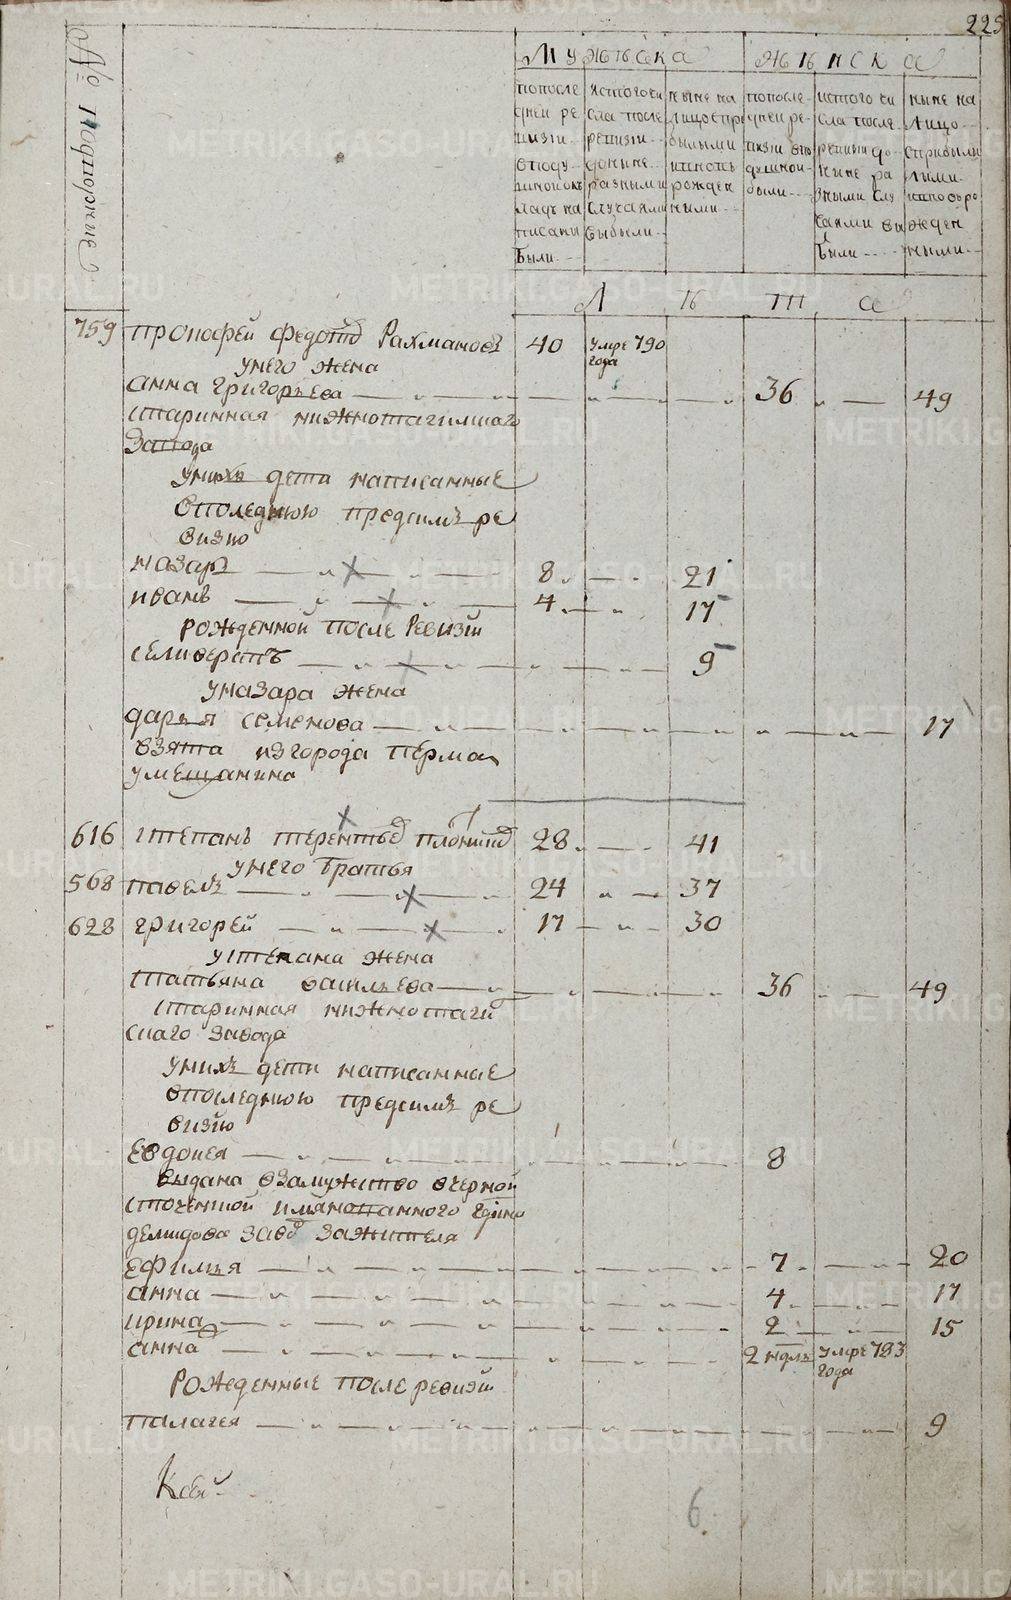 225
№ подушные
Мужеска
Женска
по последней ревизии в подушной оклад написаны были
из того числа после ревизии доныне разными случаями выбыли
ныне на лицо с прибылыми и вновь рожденными
по последней ревизии в подушной были
из того числа после ревизии доныне разными случаями выбыли
ныне на лицо с прибылыми и вновь рожденными
Лета
759 прокофей федотов Рахманов 40 умре 790 года
у него жена
анна григорьева 36 49
старинная нижнотагилшаго
завода
у них дети написанные
в последнюю пред сим ре
визию
назар 8 21
иван 4 17
рожденной после ревизии
селиверстъ 9
у назара жена
дарья семенова 17
взята из города перма
у мещанина
616 степанъ терентьев 28 41
у него братья
568 павелъ 24 37
628 григорей 17 30
у степана жена
татьяна васильева 36 49
старинная нижнотаги
скаго завода
у нихъ дети написанные
в последнюю пред симъ ре
визию
Евдокея 8
выдана в замужство в черной
сточенской
демидова завод за жителя
ефимья 7 20
анна 4 17
ирина 2 15
анна 2 ндлъ умре 783 года
Рожденные после ревизии
палагея 9
6.